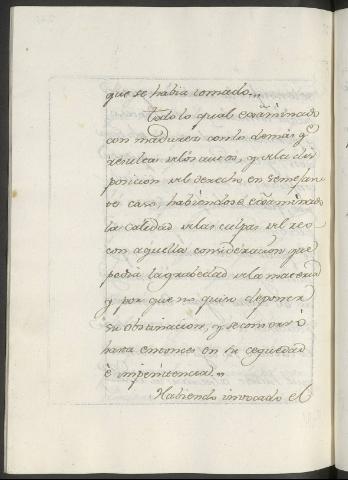 que se habia tomado...
Todo lo qual exâminado
con madurez con lo demás q.e
resulta de los autos, y de la dis
posicion del derecho en semejan
te caso, habiendose exâminado
la calidad de las culpas del reo
con aquella consideracion que
pedia la gravedad de la materia
y por que no quiso deponer
su obstinacion, y se conservó
hasta entonces en su ceguedad
è impenitencia.,,
Habiendo invocado el